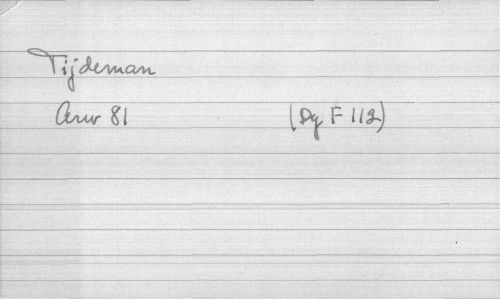 Tijdeman
Aruv 81 (Dg F 112)